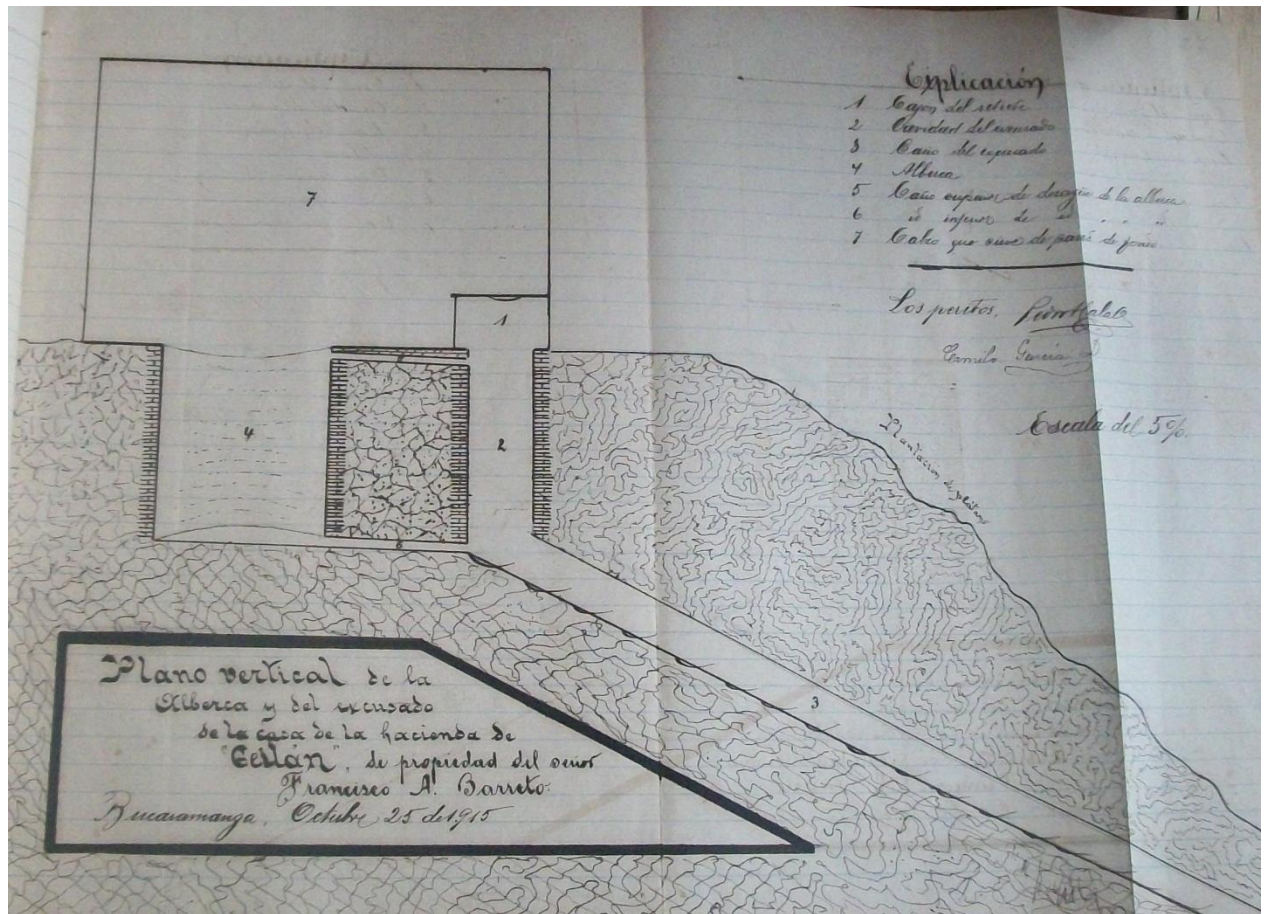 Explicación
1 Cajon del retrete
2 Cavidad del excusado
3 Caño del escusado
4 Alberca
5 Caño superior de desagüe de la alberca
6 id inferior de id " " "
7 que sirve de pared de fondo.
Los peritos,
Camilo García
Escala del 5%.
Plantacion de plátano
7
1
4
2
5
6
3
Plano vertical de la
Alberca y del excusado
de la casa de la hacienda de
de propiedad del señor
Francisco A. Barreto.
Bucaramanga, Octubre 25 de 1915